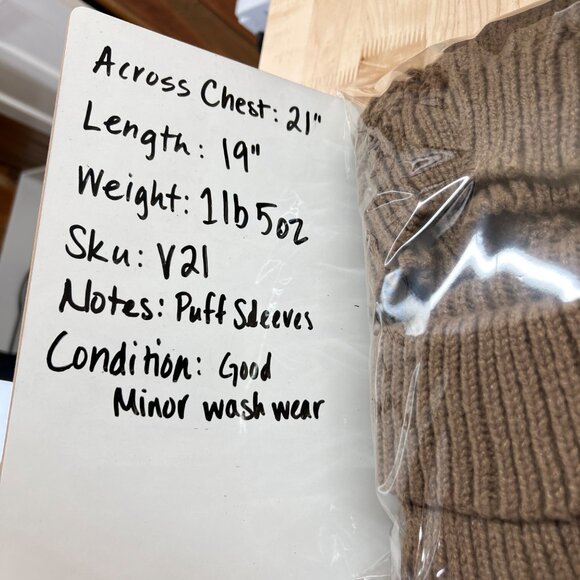 Across Chest: 21"
Length: 19"
Weight: 1lb 5oz
Sku: V21
Notes: Puff Sleeves
Condition: Good
Minor wash wear